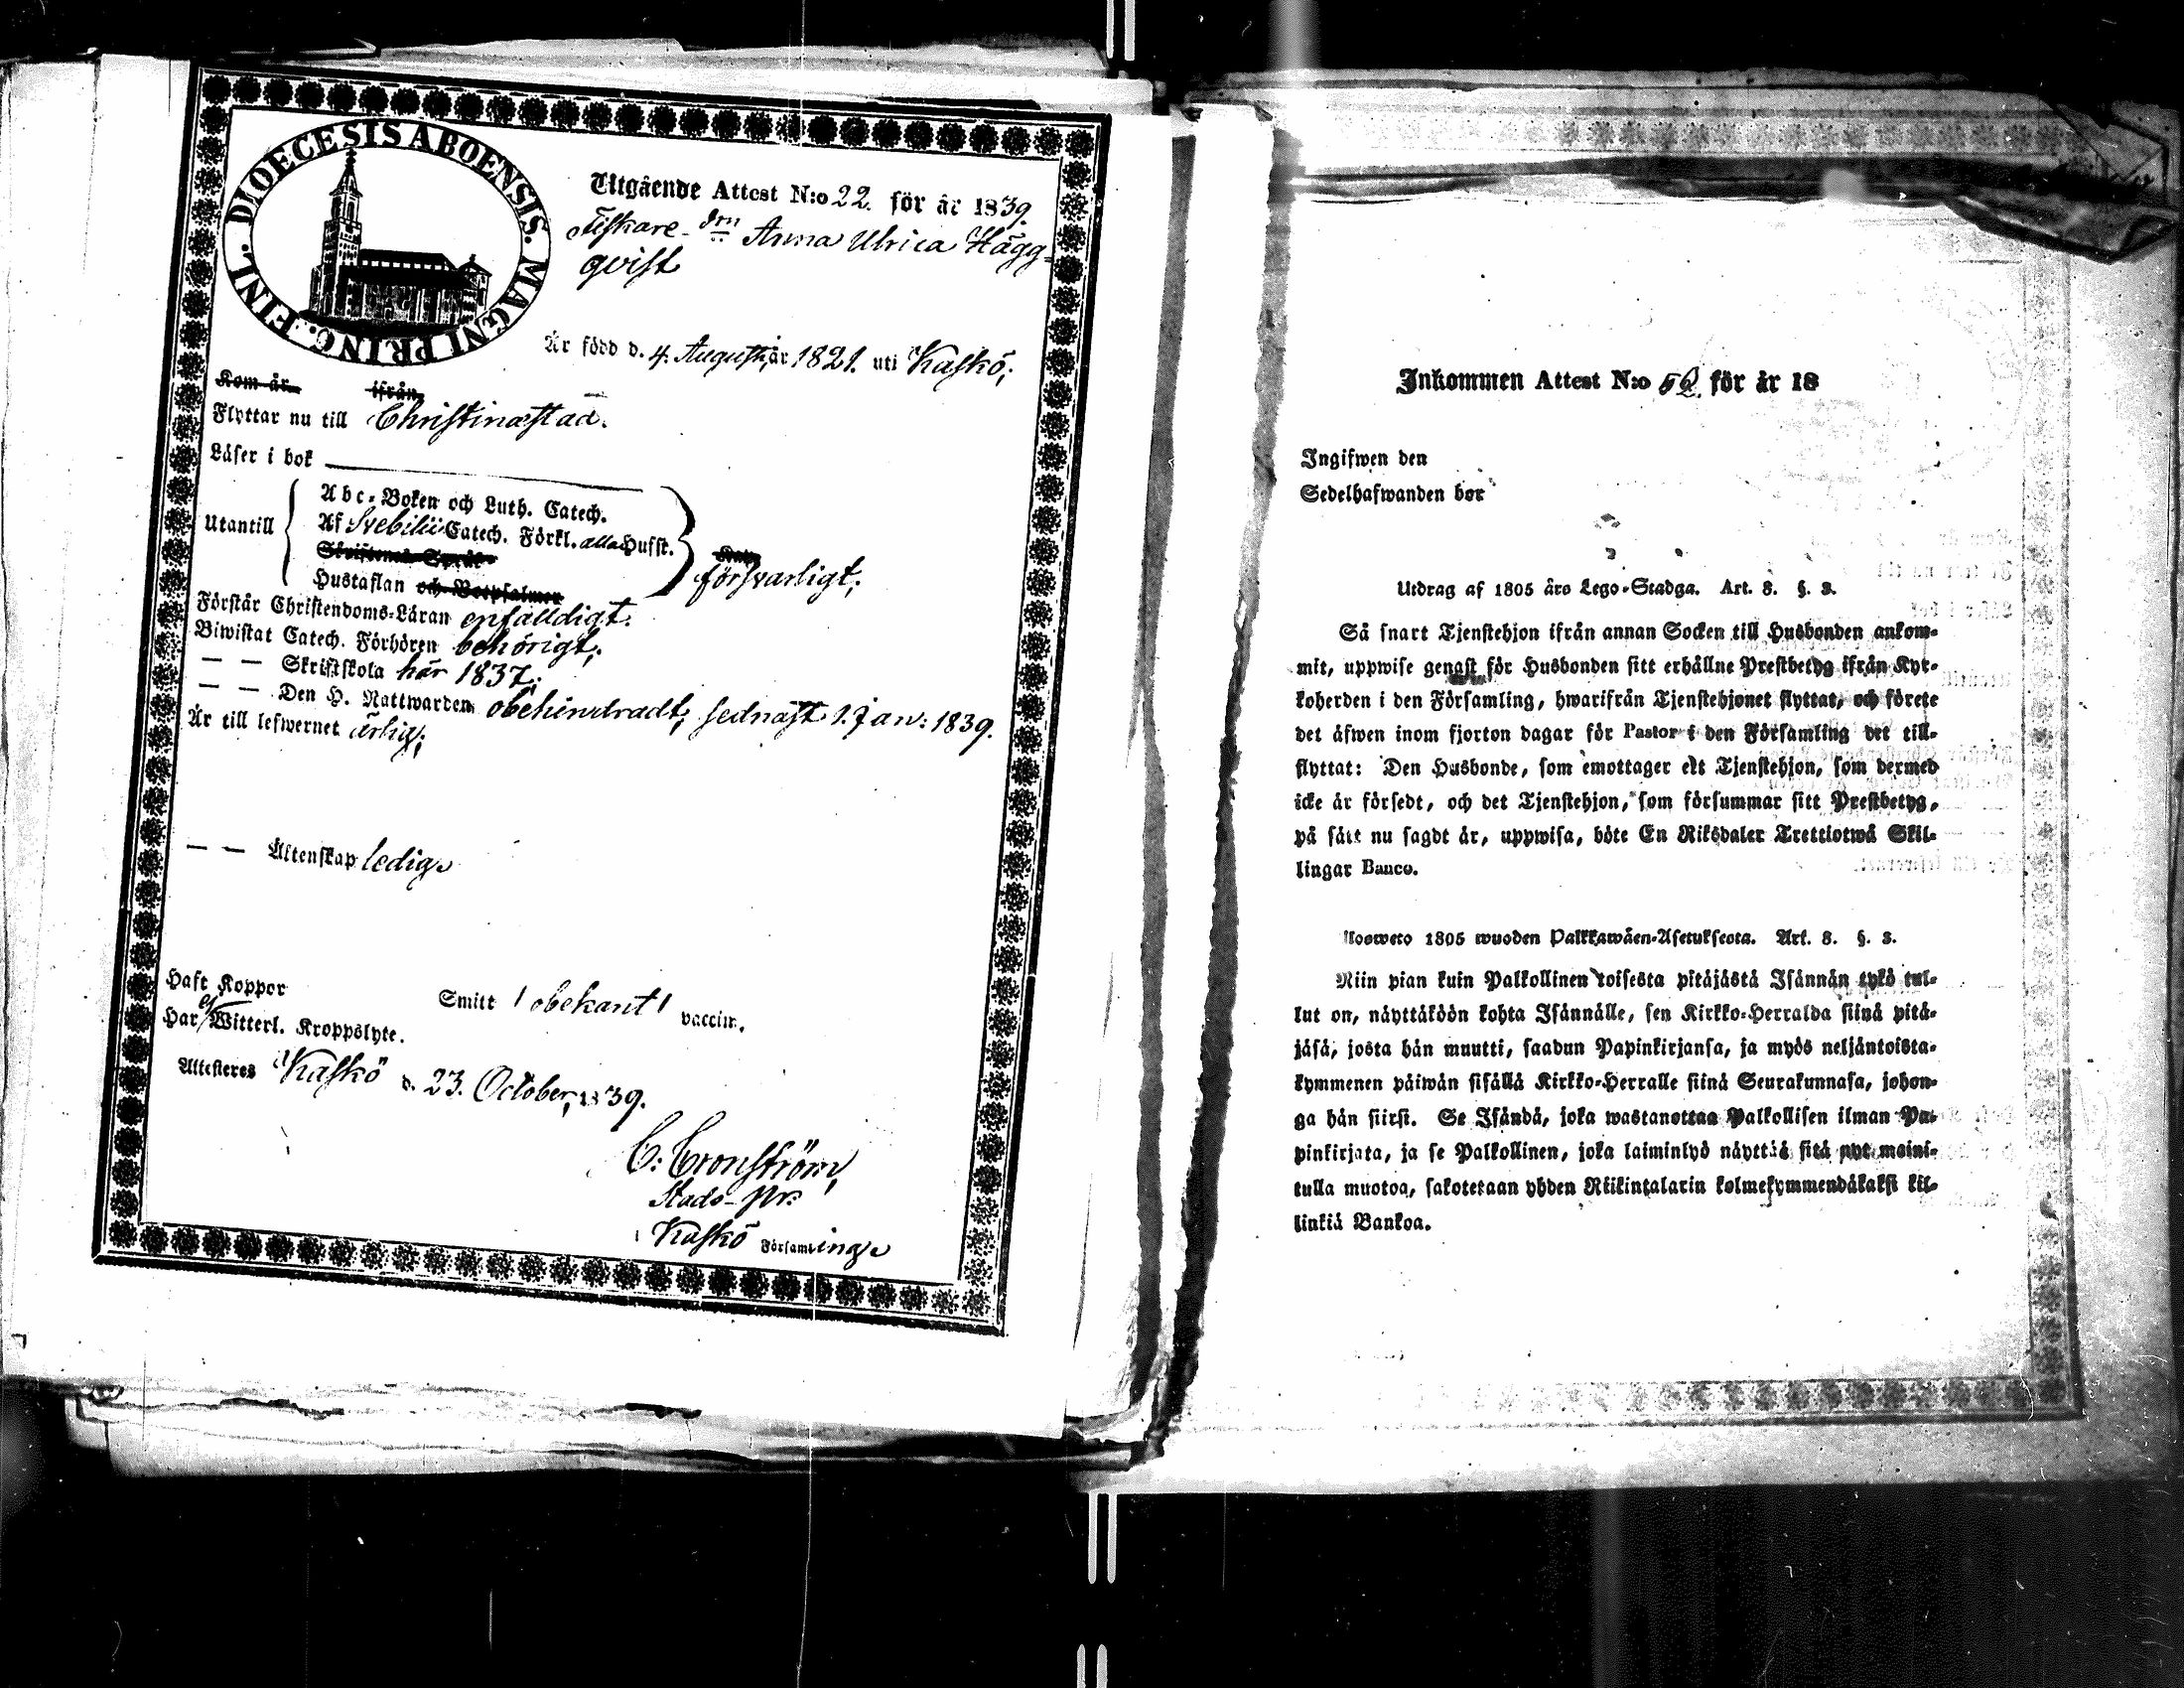 DIOECESIS ABOENSIS. MAGNI PRINC. FINL.
Utgående Attest N:o 22. för år 1839.
Fiskare-drn Anna Ulrica Hägg-
qvist
Är född d. 4. Augusti, år 1821. uti Kaskö;
Kom år ifrån
Flyttar nu till Christinæstad.
Läser i bok
Utantill
Abc-Boken och Luth. Catech.
Af Svebilii Catech. Förkl. alla Hufst.
Skriftenes Språk
Hustaflan och Botpsalmer
försvarligt;
Förstår Christendoms-Läran enfalldigt.
Biwistat Catech. Förhören behörigt;
— — Skriftskola här 1837;
— — Den H. Nattwarden obehindradt; sednast 1. Jan: 1839.
Är till lefwernet ärlig;
— — Äktenskap ledig.
Haft Koppor Smitt / obekant / vaccin.
Har ej Witterl. Kroppslyte.
Attesteres Kaskö d. 23. October, 1839.
C: Cronström,
Stads-pr.
i Kaskö Församling.
Inkommen Attest N:o 52. för år 18
Ingifwen den
Sedelhafwanden bor
Utdrag af 1805 års Lego-Stadga. Art. 8. §. 3.
Så snart Tjenstehjon ifrån annan Socken till Husbonden ankom-
mit, uppwise genast för Husbonden sitt erhållne Prestbetyg ifrån Kyr-
koherden i den Församling, hwarifrån Tjenstehjonet flyttat, och förete
det äfwen inom fjorton dagar för Pastor i den Församling det till-
flyttat: Den Husbonde, som emottager ett Tjenstehjon, som dermed
icke är försedt, och det Tjenstehjon, som försummar sitt Prestbetyg,
på sätt nu sagdt är, uppwisa, böte En Riksdaler Trettiotwå Skil-
lingar Banco.
Uosweto 1805 wuoden Palkkawäen-Asetuksesta. Art. 8. §. 3.
Niin pian kuin Palkollinen toisesta pitäjästä Isännän tykö tul-
lut on, näyttäköön kohta Isännälle, sen Kirkko-Herralda siinä pitä-
jäsä, josta hän muutti, saadun Papinkirjansa, ja myös neljäntoista-
kymmenen päiwän sisällä Kirkko-Herralle siinä Seurakunnasa, johon-
ga hän siirsi. Se Isändä, joka wastanottaa Palkollisen ilman Pa-
pinkirjata, ja se Palkollinen, joka laiminlyö näyttää sitä nyt maini-
tulla muotoa, sakotetaan yhden Riikintalarin kolmekymmendäkaksi kil-
linkiä Bankoa.